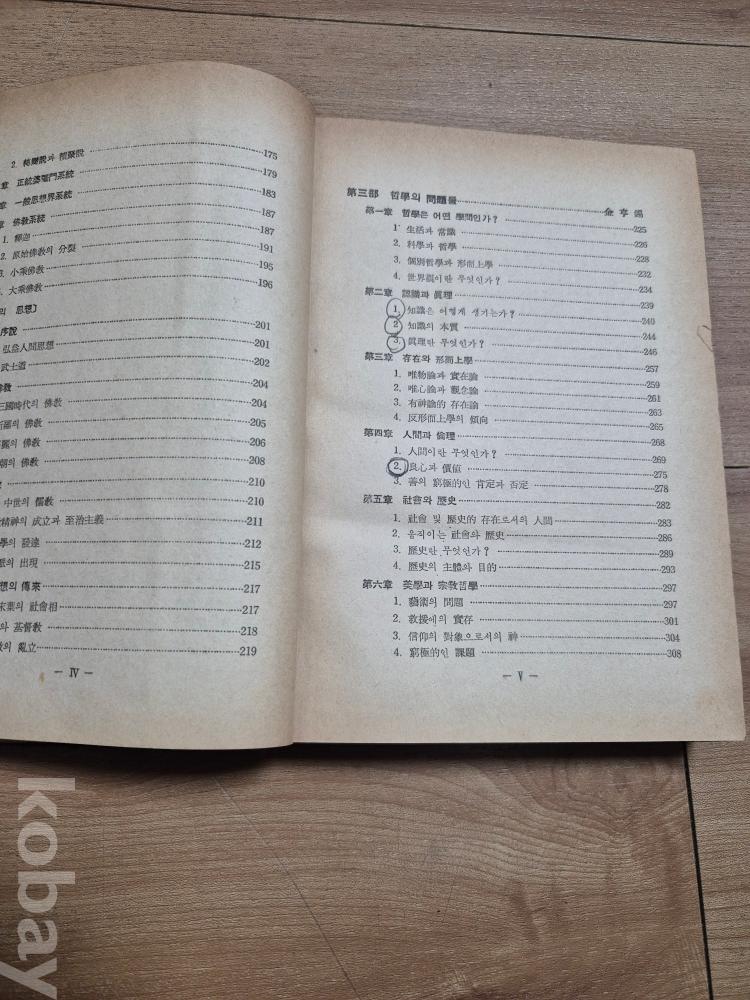 2. 轉變說과 積聚說 175
章 正統婆羅門系統 179
章 一般思想界系統 183
章 佛敎系統 187
1. 釋迦 187
2. 原始佛敎의 分裂 191
3. 小乘佛敎 195
4. 大乘佛敎 196
의 思想〕
序說 201
弘益人間思想 201
武士道 202
佛敎 204
三國時代의 佛敎 204
新羅의 佛敎 205
高麗의 佛敎 206
朝의 佛敎 208
210
中世의 儒敎 210
精神의 成立과 至治主義 211
學의 發達 212
派의 出現 215
想의 傳來 217
末葉의 社會相 217
와 基督敎 218
의 亂立 219
— Ⅳ —
第三部 哲學의 問題들 金亨錫
第一章 哲學은 어떤 學問인가? 225
1. 生活과 常識 226
2. 科學과 哲學 228
3. 個別哲學과 形而上學 232
4. 世界觀이란 무엇인가? 234
第二章 認識과 眞理 239
1. 知識은 어떻게 생기는가? 240
2. 知識의 本質 244
3. 眞理란 무엇인가? 246
第三章 存在와 形而上學 257
1. 唯物論과 實在論 259
2. 唯心論과 觀念論 261
3. 有神論的 存在論 263
4. 反形而上學의 傾向 265
第四章 人間과 倫理 268
1. 人間이란 무엇인가? 269
2. 良心과 價値 275
3. 善의 窮極的인 肯定과 否定 278
第五章 社會와 歷史 282
1. 社會 및 歷史的 存在로서의 人間 283
2. 움직이는 社會와 歷史 286
3. 歷史란 무엇인가? 289
4. 歷史의 主體와 目的 293
第六章 美學과 宗敎哲學 297
1. 藝術의 問題 297
2. 救援에의 實存 301
3. 信仰의 對象으로서의 神 304
4. 窮極的인 課題 308
— Ⅴ —
kobay